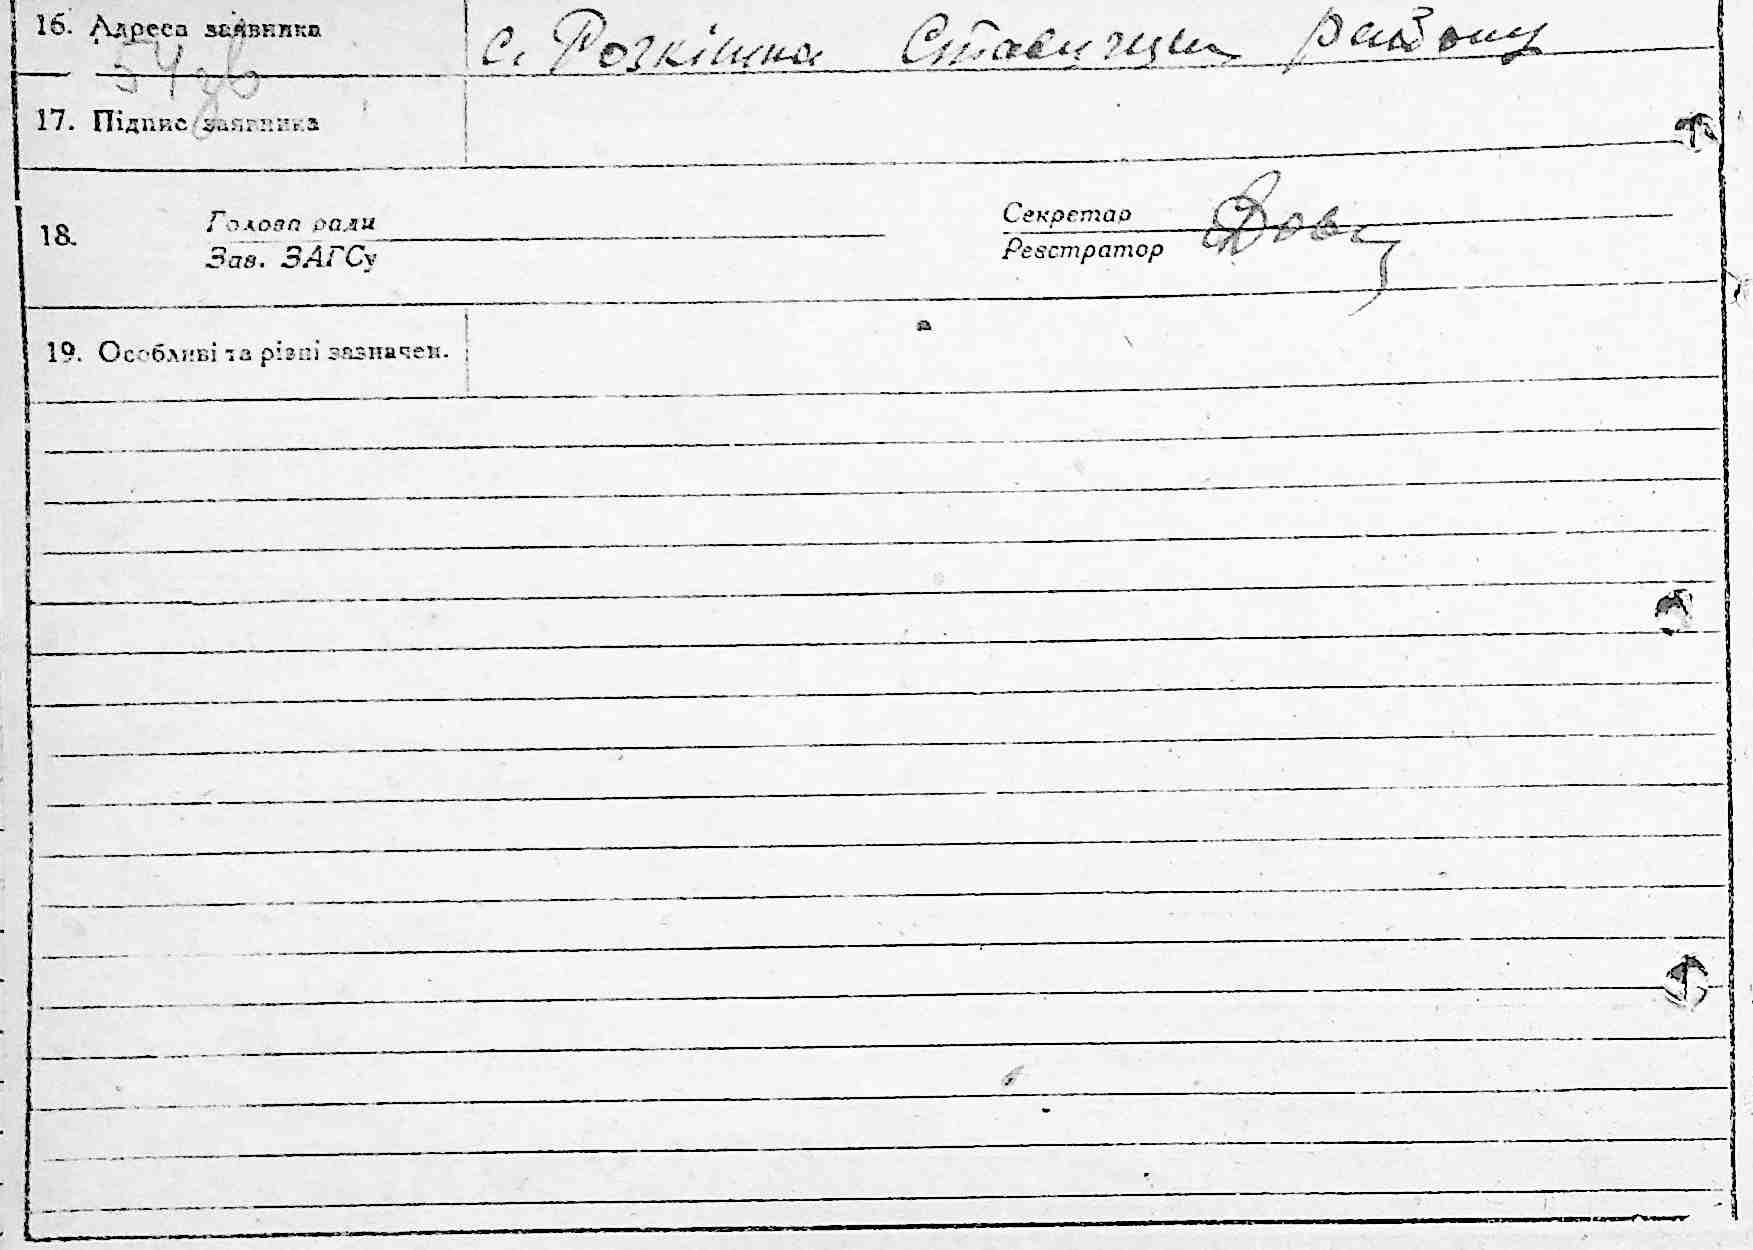 16. Адреса заявника с. Розкішна Ставищен району
17. Підпис заявника
18. Голова ради Секретар
Зав. ЗАГСу Реєстратор
19. Особливі та різні зазначен.